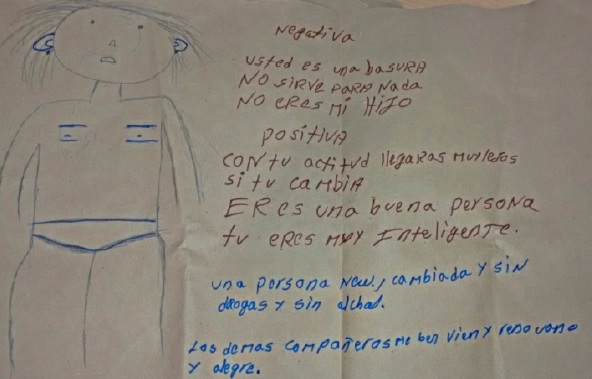 Negativa
usted es una basura
NO SIRVE PARA Nada
NO eres mi HIJO
positiva
CON tu actitud llegaras muy lejos
si tu cambia
ERes una buena persona
tu eres muy Inteligente.
una persona New, cambiada y sin
drogas y sin alchol.
Los demas compañeros me ben vien y renovano
y alegre.